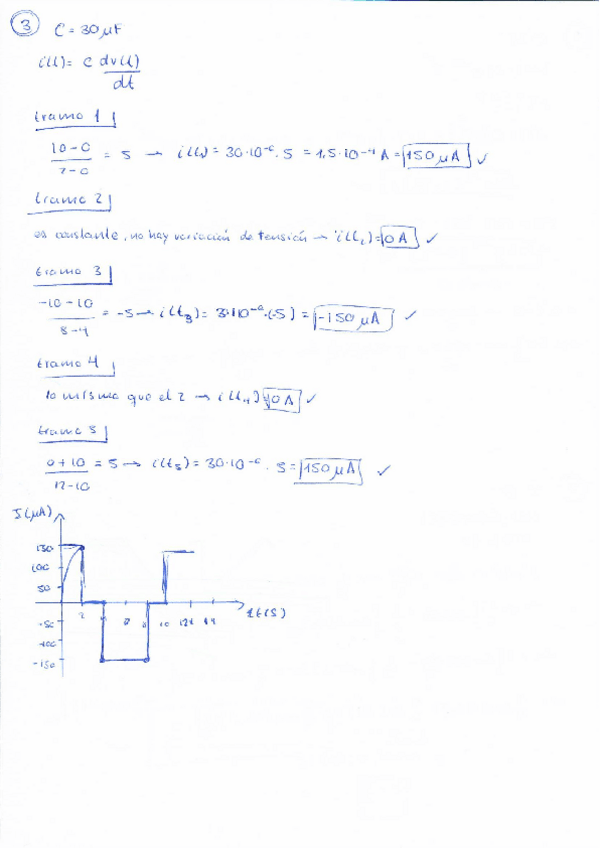 3 C = 30 μF
i(t) = C dv(t)
dt
tramo 1
10-0
2-0
= 5 → i(t₁) = 30·10⁻⁶·5 = 1,5·10⁻⁴ A = 150 μA ✓
tramo 2
es constante, no hay variación de tensión → i(t₂) = 0 A ✓
tramo 3
-10-10
8-4
= -5 → i(t₃) = 30·10⁻⁶·(-5) = -150 μA ✓
tramo 4
lo mismo que el 2 → i(t₄) 0 A ✓
tramo 5
0+10
12-10
= 5 → i(t₅) = 30·10⁻⁶·5 = 150 μA ✓
I(μA)
150
100
50
2 8 10 12 14 t(s)
-50
-100
-150